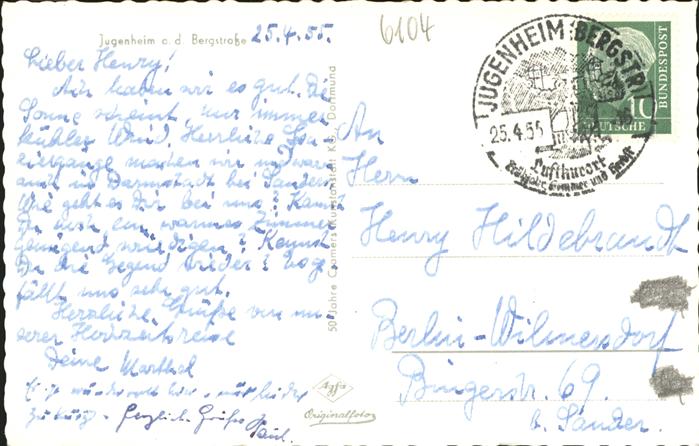 Jugenheim a. d. Bergstraße 25.4.55.
6104
Lieber Henry!
Ach haben wir es gut. Die
Sonne scheint, nur immer
kühler Wind. Herrliche
machen wir u. waren
auch in Darmstadt bei Sanders
Wie geht es Dir bei uns? Kannst
Du doch ein warmes Zimmer
genügend würdigen? Kennst
Du die Gegend wieder? Es ge-
fällt uns sehr gut.
Herzliche Grüße von un-
serer Hochzeitsreise
Deine Marthel
Es ist wundervoll hier, nur leider
zu kurz. Herzliche Grüße Paul.
50 Jahre Cramers Kunstanstalt KG., Dortmund
Agfa
Originalfoto
JUGENHEIM BERGSTR.
25.4.55
Luftkurort
Frühjahr, Sommer und Herbst
10
DEUTSCHE BUNDESPOST
An
Herrn
Henry Hildebrandt
Berlin-Wilmersdorf
Bingerstr. 69.
b. Sander